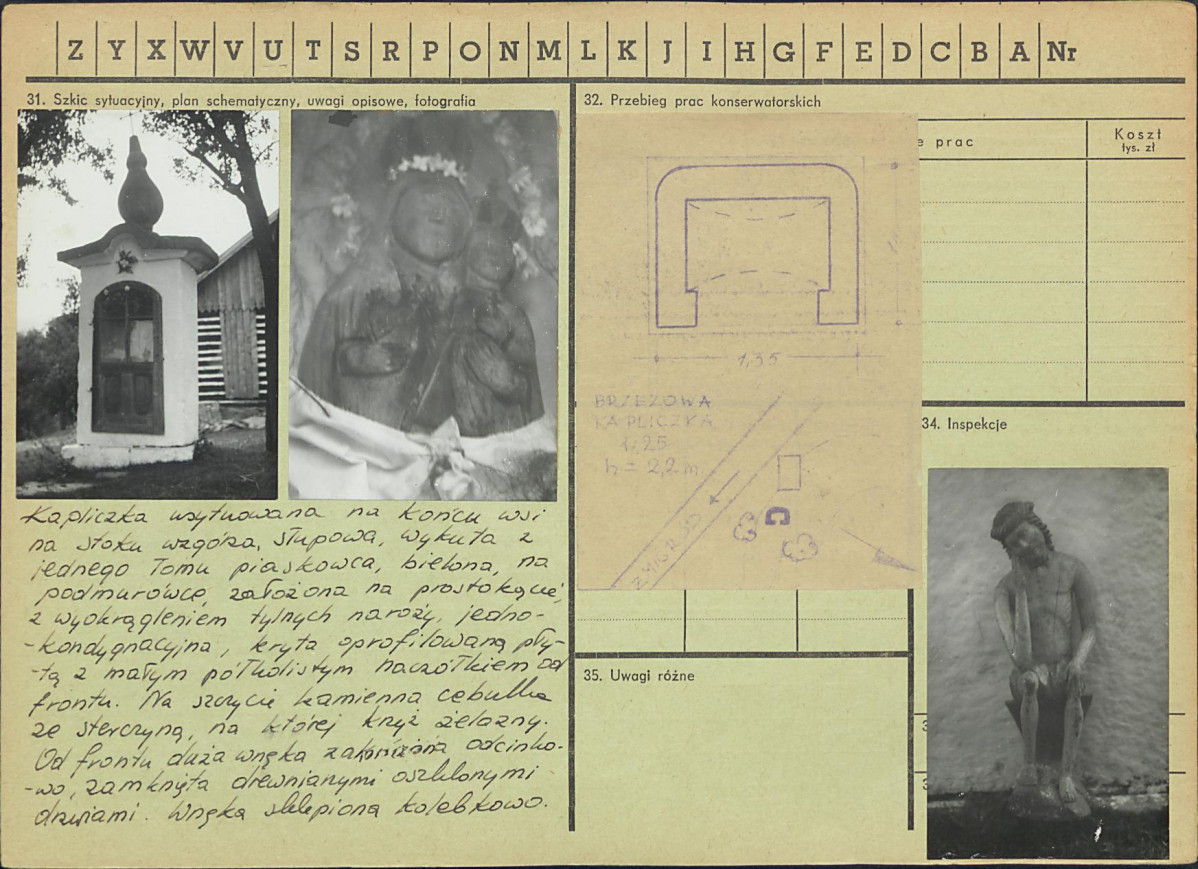 Z Y X W V U T S R P O N M L K J I H G F E D C B A Nr
31. Szkic sytuacyjny, plan schematyczny, uwagi opisowe, fotografia
Kapliczka usytuowana na końcu wsi
na stoku wzgórza, słupowa, wykuta z
jednego łomu piaskowca, bielona, na
podmurówce, założona na prostokącie,
z wyokrągleniem tylnych naroży, jedno-
-kondygnacyjna, kryta oprofilowaną pły-
-tą z małym półkolistym naczółkiem od
frontu. Na szczycie kamienna cebulka
ze sterczyną, na której krzyż żelazny.
Od frontu duża wnęka zamknięta odcinko-
-wo, zamknięta drewnianymi oszklonymi
drzwiami. Wnęka sklepiona kolebkowo.
32. Przebieg prac konserwatorskich
e prac
Koszt
tys. zł
1,35
BRZEZOWA
KAPLICZKA
1:25
h = 2,2 m
34. Inspekcje
35. Uwagi różne